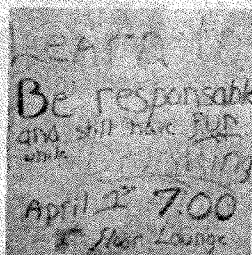 Learn
Be responsable
and still have Fun
while
April 1st 7:00
Floor Lounge